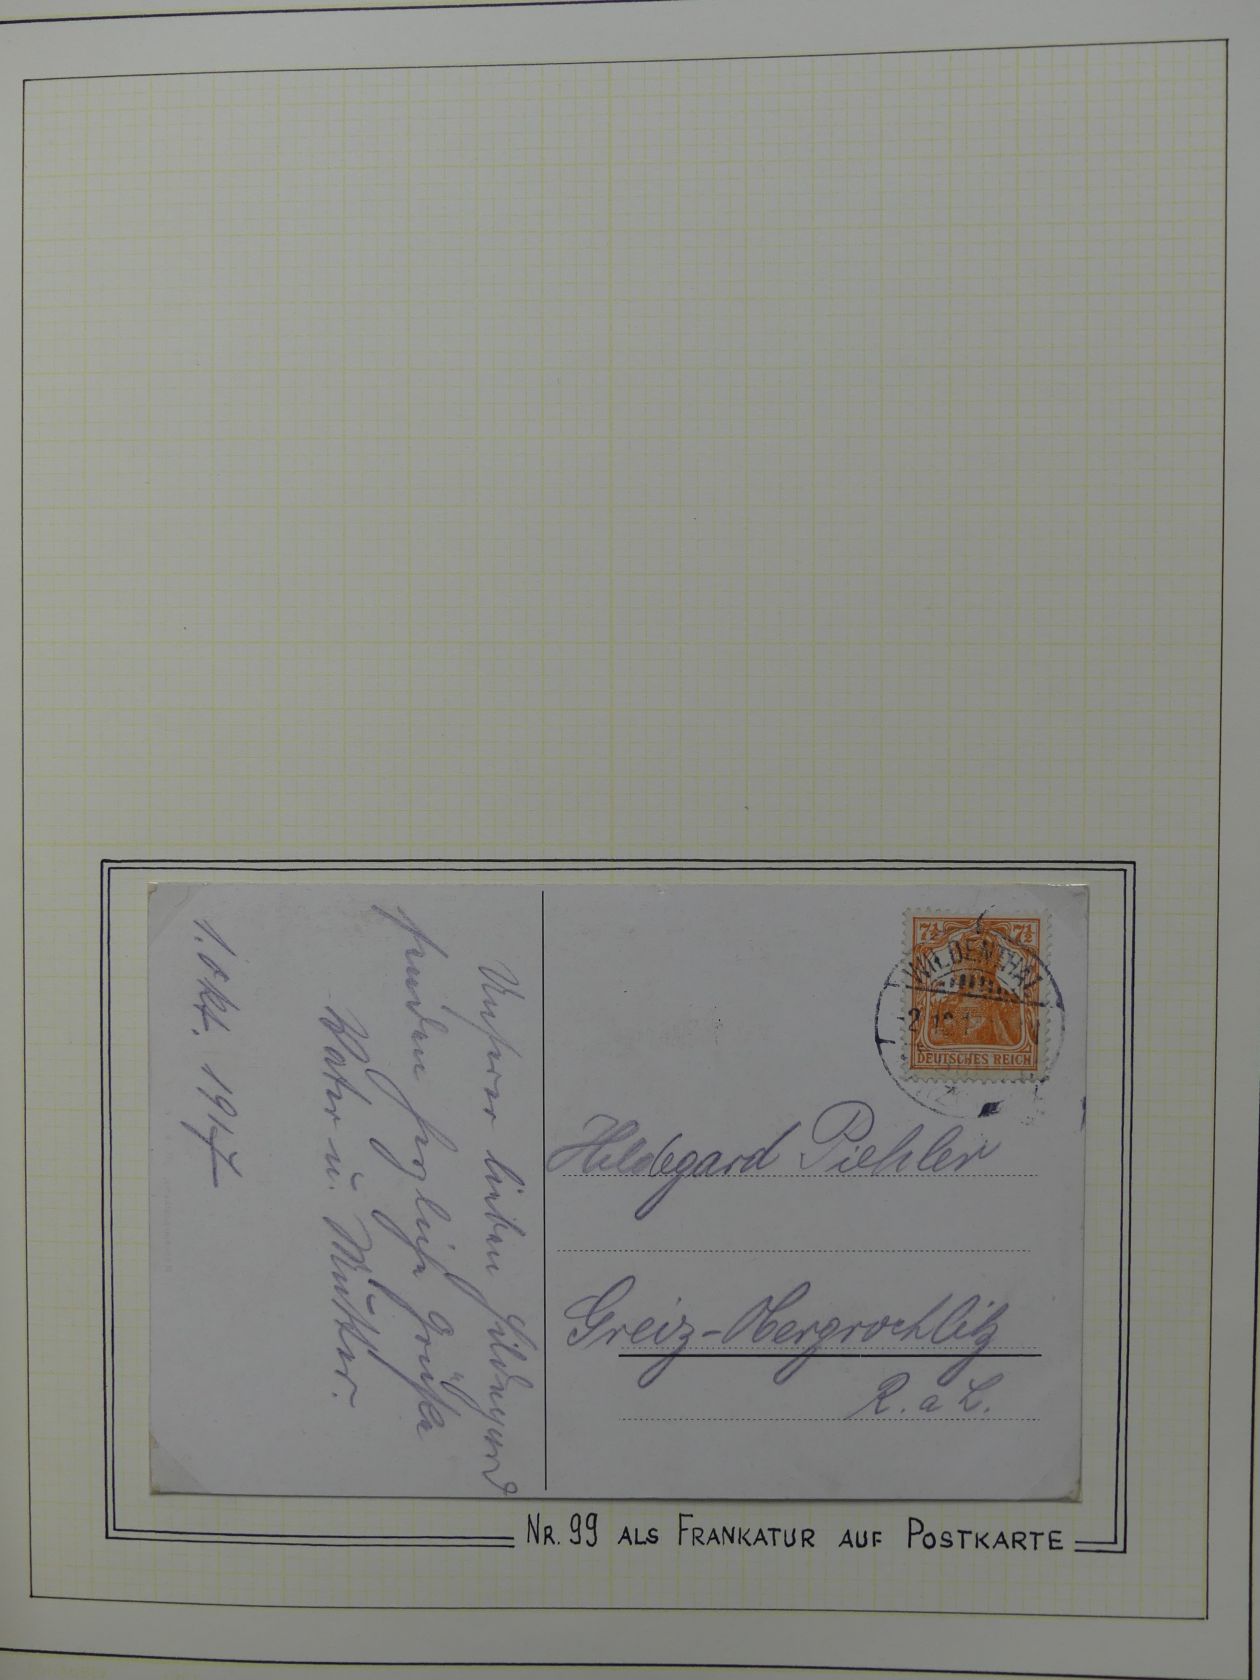 1. Okt. 1917
Unserer lieben Hildegard
senden herzliche Grüße
Vater u. Mutter.
7½ 7½
DEUTSCHES REICH
WILDENTHAL
2.10.17
Hildegard Piehler
Greiz-Obergrochlitz
R. ä L.
NR. 99 ALS FRANKATUR AUF POSTKARTE